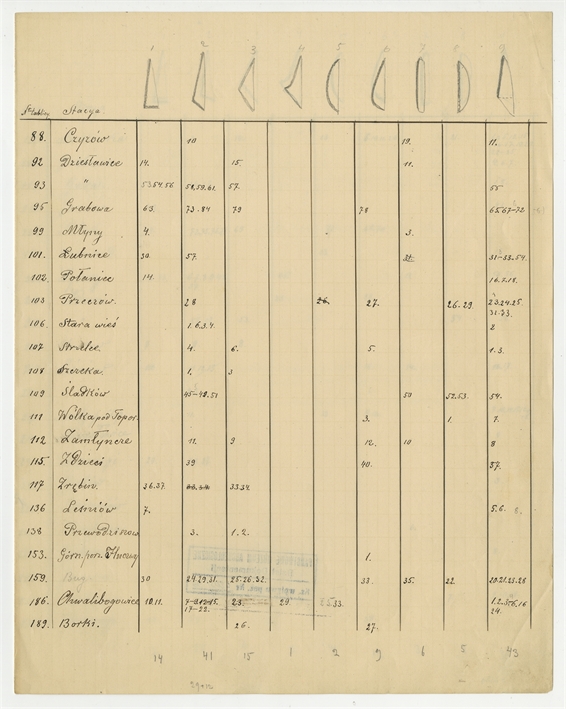 1 2 3 4 5 6 7 8 9
Stacya
88. Czyżów 10 19. 11.
92 Dziesławice 14. 15. 11.
93 " 53.54.56 58,59.61. 57. 55
95 Grabowa 63. 73.84 79 78 65.67-72
99 Młyny 4. 3.
101. Łubnice 30. 57. 31-53.54.
102. Połaniec 14. 16.18.
103 Przeczów. 28 26. 27. 26-29. 23.24.25.
31-33.
106. Stara wieś 1.6.3.4. 2
107. Strzelce 4. 6. 5. 1.3.
108 Szczeka 1. 3
109 Śladków 45-49.51 50 52.53. 54.
111 Wólka pod Topor. 3. 1. 7.
112 Zamłyncze 11. 9 12. 10 8
115. Zdzieci 39 40. 37.
117 Zrębin. 36.37. 33.34.
136 Leśniów 7. 5.6. 8.
138 Przewodziszow 3. 1.2.
153. Górn. pon. 1.
159. 30 24.29.31. 25.26.32. 33. 35. 22. 20.21.23.28
186. Chwalibogowice 10.11. 23. 29 25.33. 1.2.3.5.6.16
17-22. 24.
189. Borki. 26. 27.
14 41 15 1 2 9 6 5 43
39+12